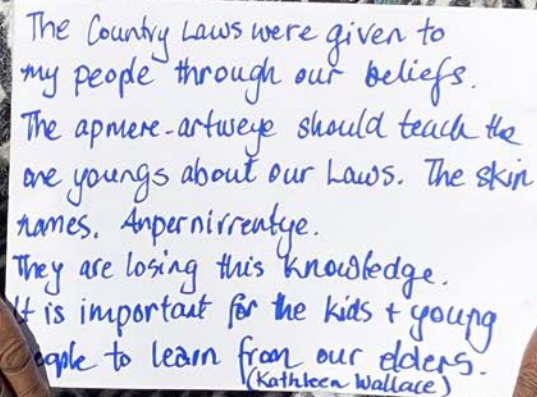 The Country Laws were given to
my people through our beliefs.
The apmere-artweye should teach the
one youngs about our Laws. The skin
names. Anpernirrentye.
They are losing this knowledge.
It is important for the kids + young
people to learn from our elders.
(Kathleen Wallace)